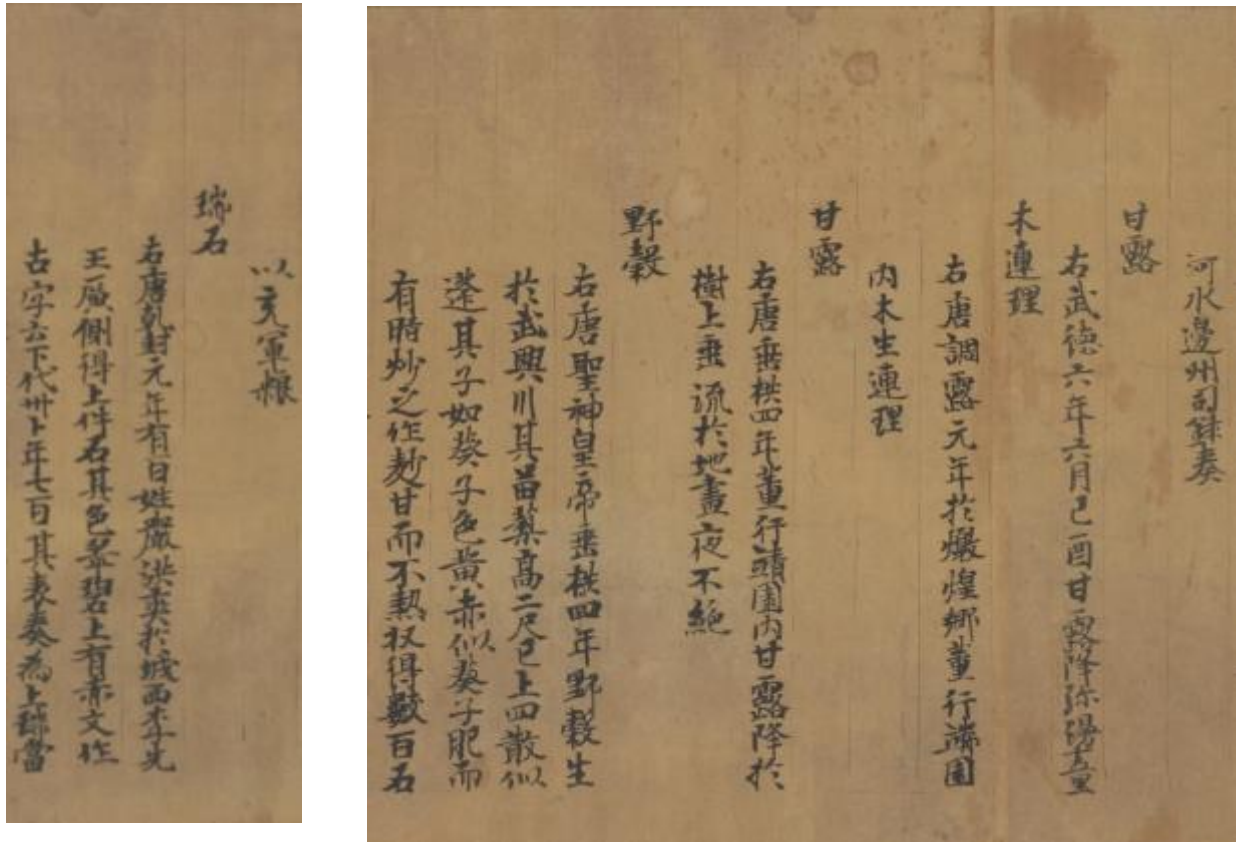 河水邊州司錄奏
甘露
右武德六年六月己酉甘露降弥漫
木連理
右唐調露元年於燉煌鄉董行端園
内木生連理
甘露
右唐垂拱四年董行端園内甘露降於
樹上垂流於地晝夜不絕
野穀
右唐聖神皇帝垂拱四年野穀生
於武興川其苗蔾高二尺已上四散似
蓬其子如葵子色黃赤似葵子肥而
有脂炒之作麨甘而不熱收得數百石
以充軍粮
瑞石
右唐乾封元年有百姓嚴洪爽於城西李先
王廟側得上件石其色翠碧上有赤文作
古字云下代卅卜年七百其表奏為上瑞當